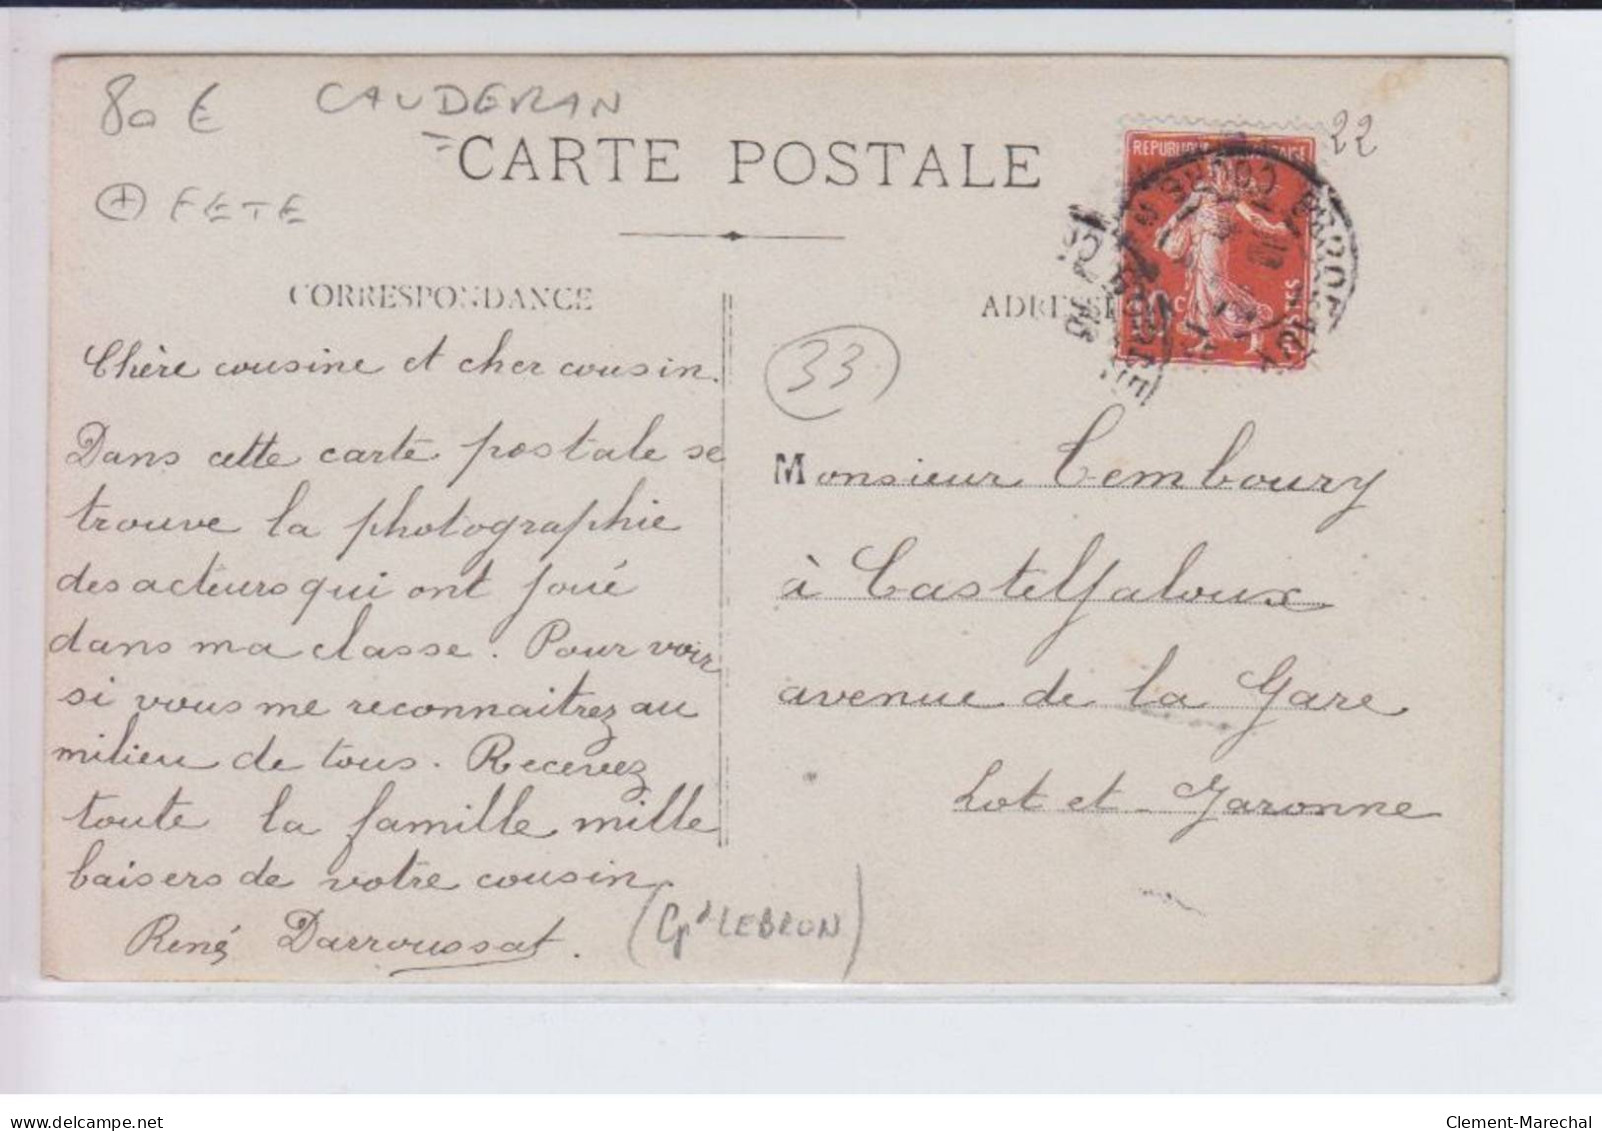 80 € CAUDERAN
22
CARTE POSTALE
+ FETE
CORRESPONDANCE
ADRESSE
REPUBLIQUE
POSTES
33
Chère cousine et cher cousin.
Dans cette carte postale se
trouve la photographie
des acteurs qui ont joué
dans ma classe. Pour voir
si vous me reconnaitrez au
milieu de tous. Recevez
toute la famille mille
baisers de votre cousin.
René Darroussat.
(Gd LEBRUN)
Monsieur Temboury
à Casteljaloux
avenue de la Gare
Lot et Garonne
delcampe.net
Clement-Marechal